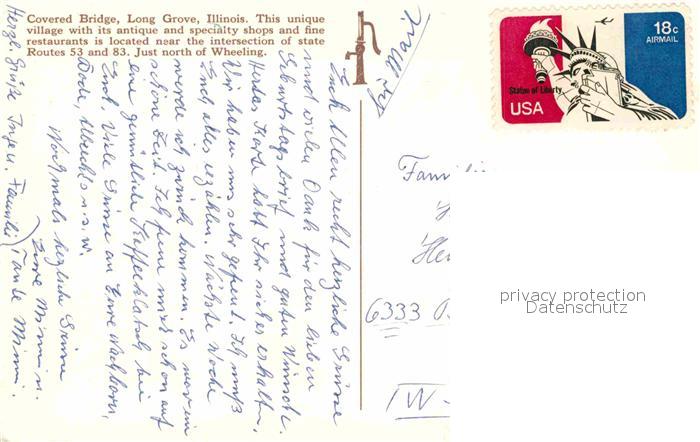 Covered Bridge, Long Grove, Illinois. This unique
village with its antique and specialty shops and fine
restaurants is located near the intersection of state
Routes 53 and 83. Just north of Wheeling.
Air Mail
18c
AIRMAIL
Statue of Liberty
USA
Euch Allen recht herzliche Grüsse
und vielen Dank für den lieben
Geburtstagsbrief und guten Wünsche.
Karte habt Ihr sicher erhalten.
Wir haben uns sehr gefreut. Ich muß
Euch alles erzählen. Nächste Woche
werde ich zurück kommen. Es war eine
schöne Zeit. Ich freue mich schon auf
eine gemütliche Kaffeeklatsch bei
Euch. Viele Grüsse an Eure Nachbarn,
u.s.w.
Nochmals herzliche Grüsse
Eure Mimi
Tante Mimi.
Herzl. Grüße Familie
Famili
6333
W-
privacy protection
Datenschutz